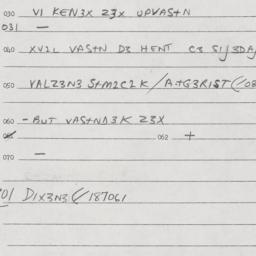 030 VI KEN3X Z3X UPVAS+N
031 —
040 XV2L VAS+N D3 HENT C3 SIJ3DA
050 VALZ3N3 S+M2C2K/A+G3RIST(/03
060 -BUT VAS+ND3K Z3X
062 +
070 —
01 DIX3N3(/187061